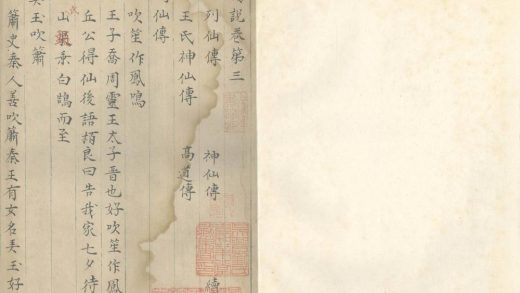 說卷第三
列仙傳 神仙傳 續
王氏神仙傳 高道傳
仙傳
吹笙作鳳鳴
王子喬周靈王太子晉也好吹笙作鳳
丘公得仙後語良曰告我家七夕待
山乘白鵠而至
美玉吹簫
簫史秦人善吹簫秦王有女名美玉好